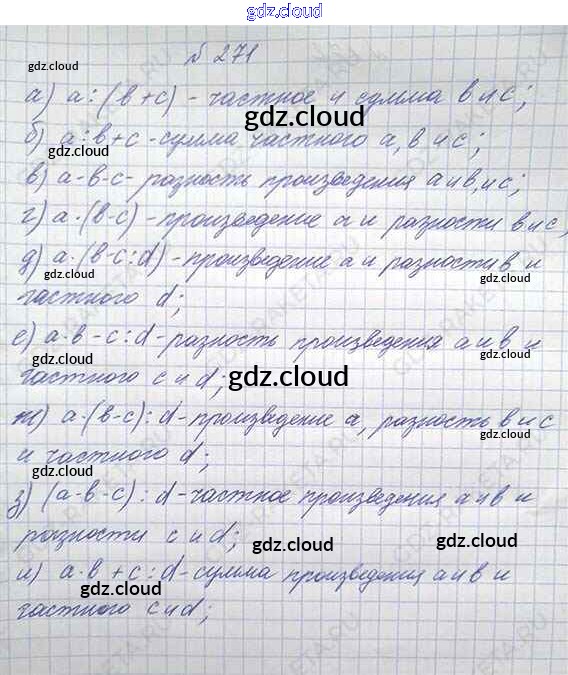 gdz.cloud
№ 271
gdz.cloud
а) a : (в + с) - частное и сумма в и с;
gdz.cloud
б) а : в + с - сумма частного а, в и с;
gdz.cloud
gdz.cloud
в) а · в - с - разность произведения а и в, и с;
г) а · (в - с) - произведение а и разности в и с,
д) а · (в - с : d) - произведение а и разности в и
gdz.cloud
gdz.cloud
частного d;
е) а · в - с : d - разность произведения а и в и
gdz.cloud
gdz.cloud
частного с и d;
gdz.cloud
ж) а · (в - с) : d - произведение а, разность в и с
gdz.cloud
и частного d;
gdz.cloud
з) (а · в - с) : d - частное произведения а и в и
разности с и d;
gdz.cloud
gdz.cloud
и) а · в + с : d - сумма произведения а и в и
gdz.cloud
gdz.cloud
частного с и d;